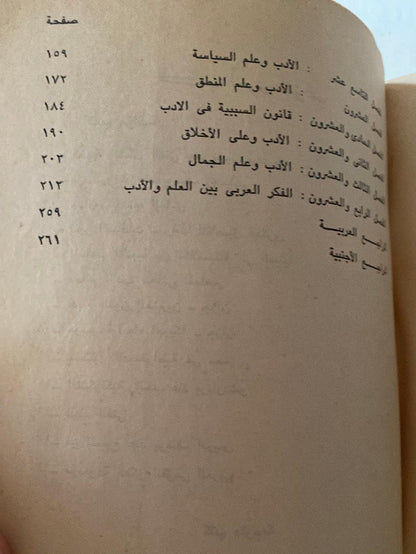 صفحة
الفصل التاسع عشر : الأدب وعلم السياسة ١٥٩
الفصل العشرون : الأدب وعلم المنطق ١٧٢
الفصل الحادى والعشرون : قانون السببية فى الادب ١٨٤
الفصل الثانى والعشرون : الأدب وعلى الأخلاق ١٩٠
الفصل الثالث والعشرون : الأدب وعلم الجمال ٢٠٣
الفصل الرابع والعشرون : الفكر العربى بين العلم والأدب ٢١٣
المراجع العربية ٢٥٩
المراجع الأجنبية ٢٦١